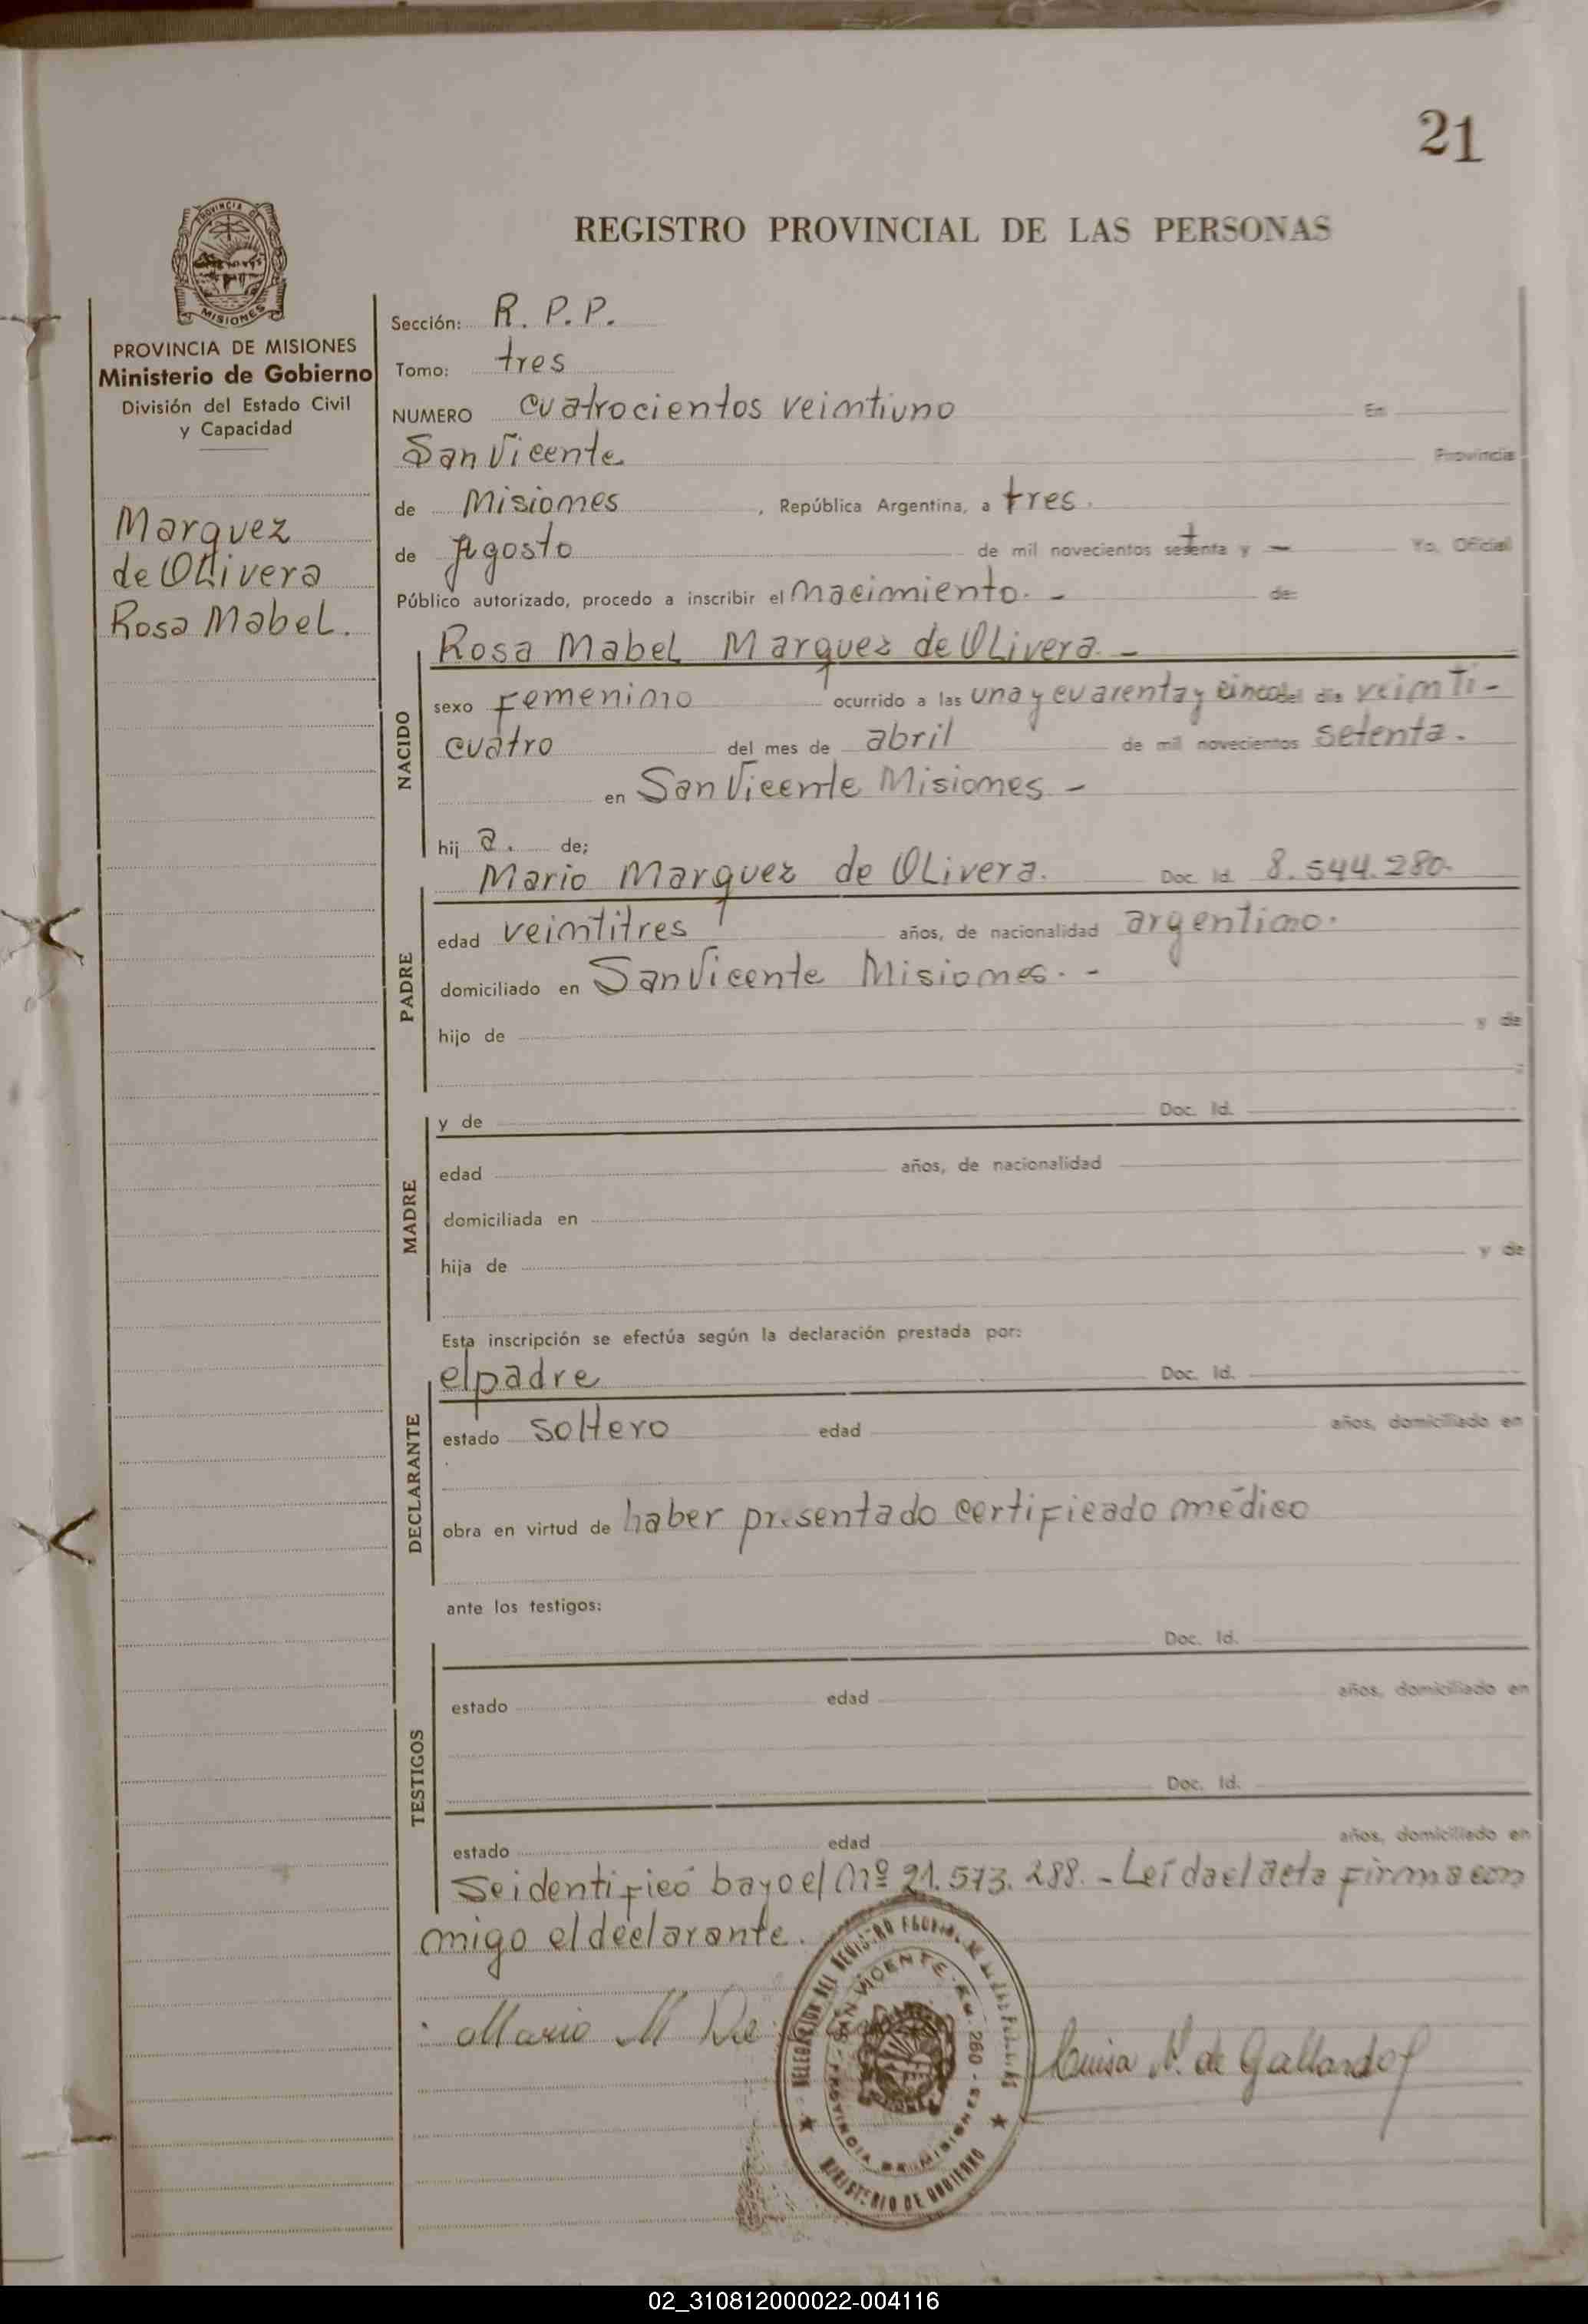 21
REGISTRO PROVINCIAL DE LAS PERSONAS
PROVINCIA DE
MISIONES
PROVINCIA DE MISIONES
Ministerio de Gobierno
División del Estado Civil
y Capacidad
Marquez
de Olivera
Rosa Mabel.
Sección: R. P. P.
Tomo: tres
NUMERO cuatrocientos veintiuno En
San Vicente Provincia
de Misiones, República Argentina, a tres.
de Agosto de mil novecientos setenta y — Yo, Oficial
Público autorizado, procedo a inscribir el nacimiento. - de:
Rosa Mabel Marquez de Olivera. -
NACIDO
sexo femenino ocurrido a las una y cuarenta y cinco del día veinti-
cuatro del mes de abril de mil novecientos setenta.
en San Vicente Misiones -
hij a. de;
Mario Marquez de Olivera. Doc. Id. 8.544.280.
PADRE
edad veintitres años, de nacionalidad argentino.
domiciliado en San Vicente Misiones. -
hijo de y de
y de Doc. Id.
MADRE
edad años, de nacionalidad
domiciliada en
hija de y de
Esta inscripción se efectúa según la declaración prestada por:
el padre Doc. Id.
DECLARANTE
estado soltero edad años, domiciliado en
obra en virtud de haber presentado certificado médico
ante los testigos:
Doc. Id.
TESTIGOS
estado edad años, domiciliado en
Doc. Id.
estado edad años, domiciliado en
Se identificó bayo el Nº 21.573.288. - Leída el acta firma con
migo el declarante.
Mario M
Luisa N. de Gallardo
DELEGACION DEL REGISTRO
SAN VICENTE 260
PROVINCIA DE MISIONES
MINISTERIO DE GOBIERNO
02_310812000022-004116